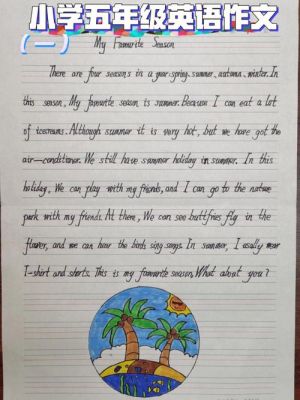 小学五年级英语作文
(一)
My Favourite Season
There are four seasons in a year-spring, summer, autumn, winter. In
this season, My favourite season is summer. Because I can eat a lot
of icecreams. Although summer it is very hot, but we have got the
air-conditioner. We still have summer holiday in summer. In this
holiday, We can play with my friends, and I can go to the nature
park with my friends. At there, We can see buttfries fly in the
flower, and we can hear the birds sing songs. In summer, I usually wear
T-shirt and shorts. This is my favourite season, What about you?